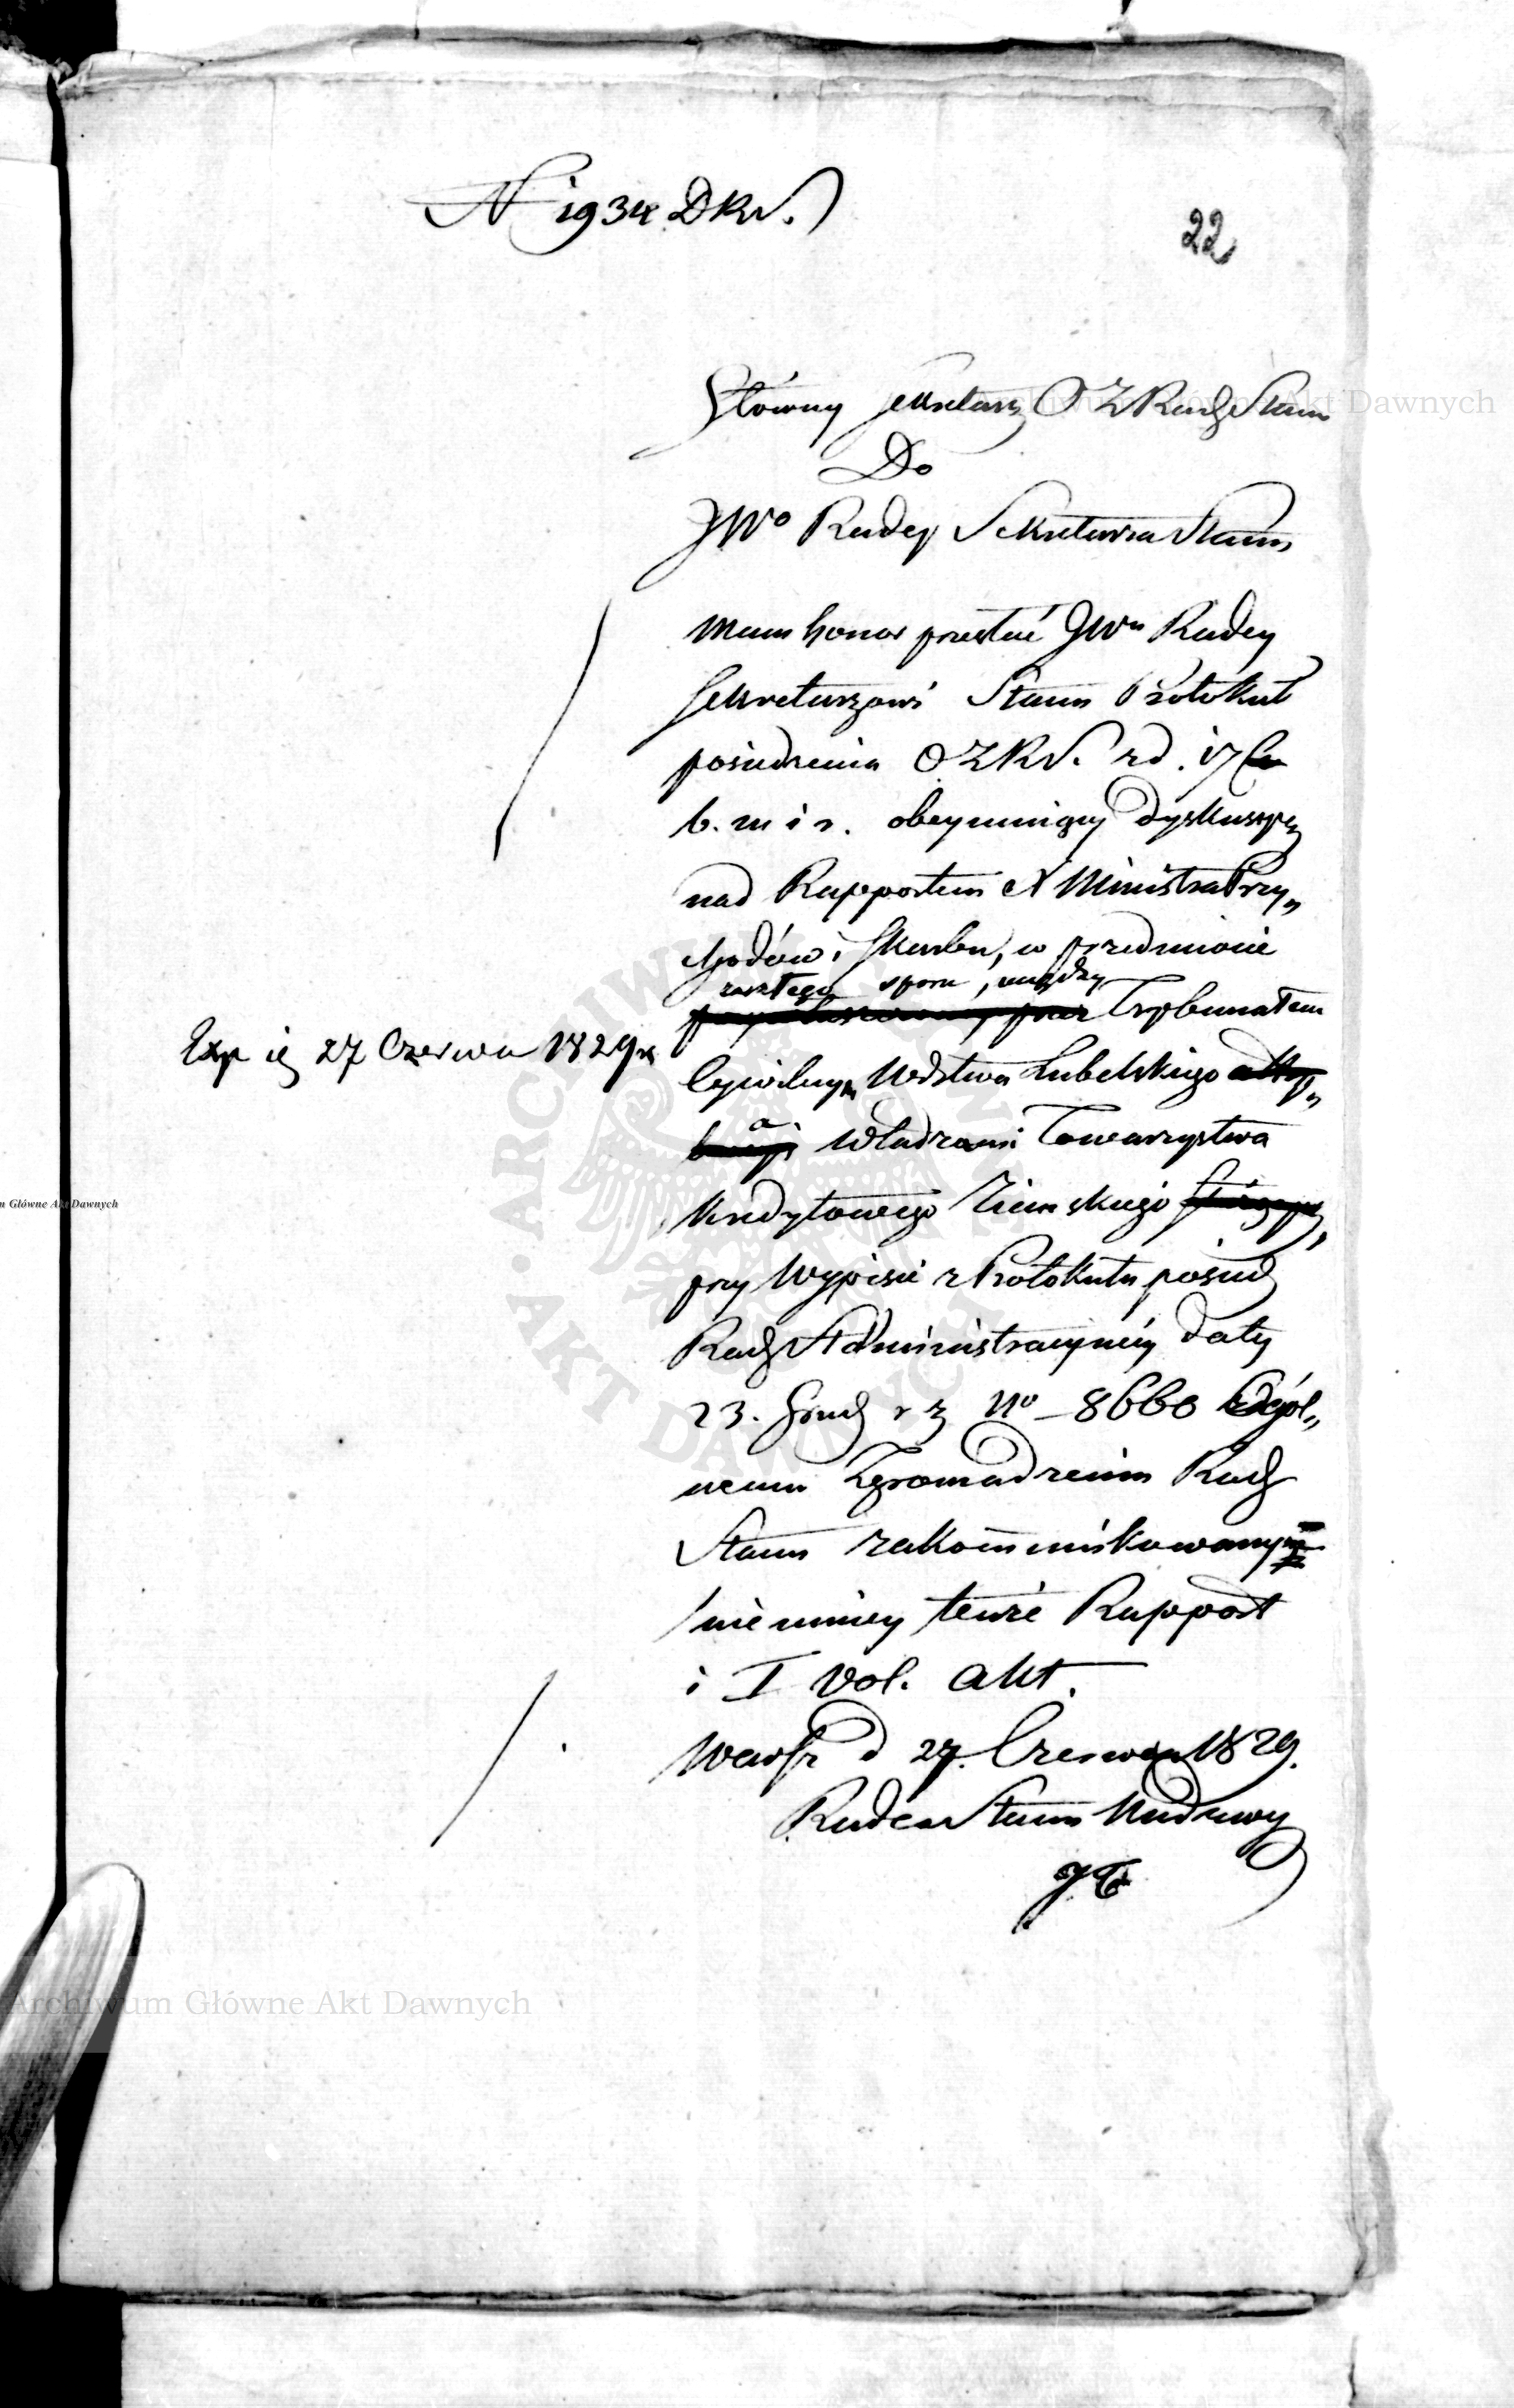 N 1934 DRS.
22
Główny Sekretarz O Z Rady Stanu
Do
JWo Radcy Sekretarza Stanu
Mam honor przesłać JWu Radcy
Sekretarzowi Stanu Protokuł
posiedzenia OZRS. z d. 17
b. m i r. obeymuiący dyskussyę
nad Rapportem X Ministra Przy„
chodów i Skarbu, w przedmiocie
zaszłego sporu, między
Trybunałem
Exp ię 27 Czerwca 1829 r.
Cywilnym Wdztwa Lubelskiego
a Władzami Towarzystwa
Kredytowego Ziemskiego
przy Wypisie z Protokułu posiedz
Rady Administracyiney daty
23. Grud r z No 8660 Ogól„
nemu Zgromadzeniu Rady
Stanu zakommunikowany
niemniey tenże Rapport
i I vol. akt.
Warsz d 27. Czerwca 1829.
Radca Stanu Nadzwy
Archiwum Główne Akt Dawnych
ARCHIWUM GŁÓWNE AKT DAWNYCH
m Główne Akt Dawnych
Archiwum Główne Akt Dawnych